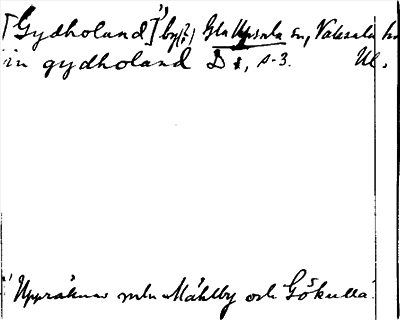 [Gydholand]¹⁾ by(?), Gla Upsala sn, Vaksala hd
in gydholand D 1, s-3. Ul.
¹⁾ Uppräknas mln Måhlby och Gökulla.